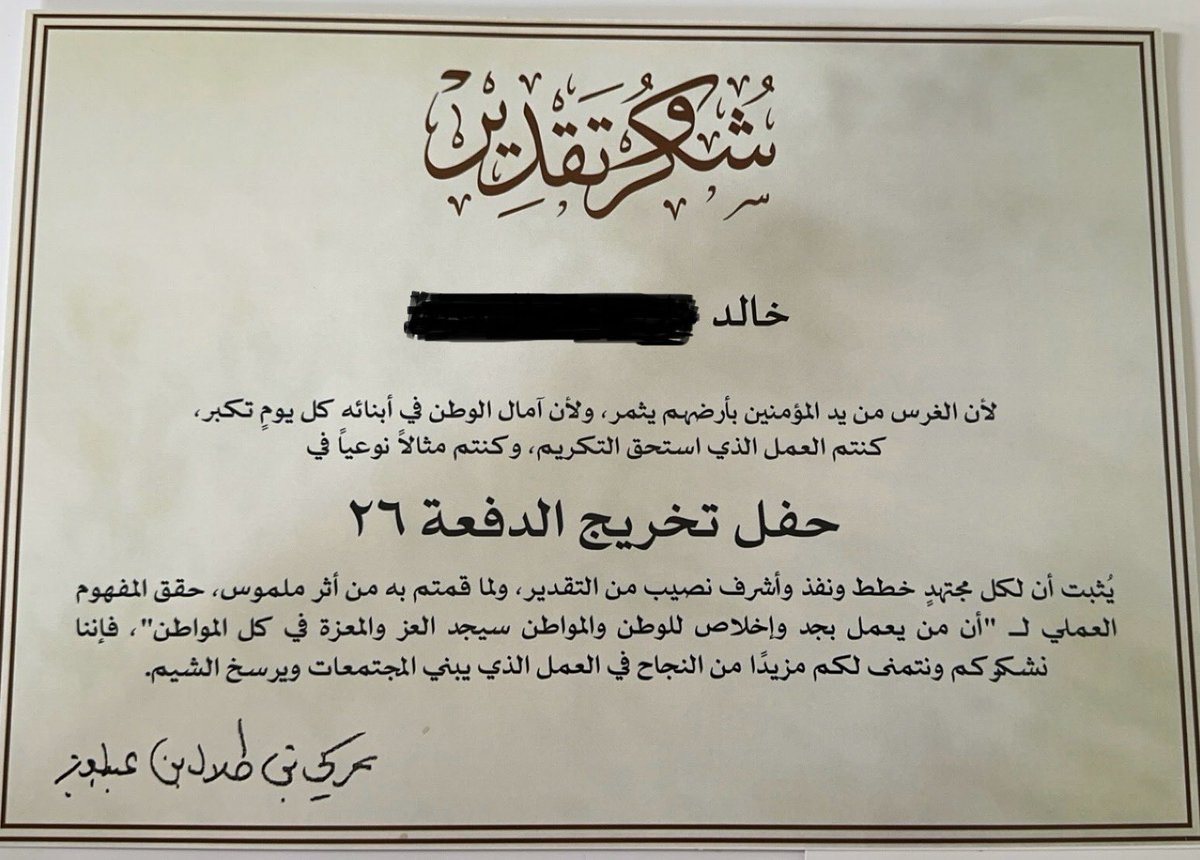 شُكْرٌ وَتَقْدِيرٌ
خالد
لأن الغرس من يد المؤمنين بأرضهم يثمر، ولأن آمال الوطن في أبنائه كل يومٍ تكبر،
كنتم العمل الذي استحق التكريم، وكنتم مثالاً نوعياً في
حفل تخريج الدفعة ٢٦
يُثبت أن لكل مجتهدٍ خطط ونفذ وأشرف نصيب من التقدير، ولما قمتم به من أثر ملموس، حقق المفهوم
العملي لـ "أن من يعمل بجد وإخلاص للوطن والمواطن سيجد العز والمعزة في كل المواطن"، فإننا
نشكركم ونتمنى لكم مزيدًا من النجاح في العمل الذي يبني المجتمعات ويرسخ الشيم.
تركي بن طلال بن عبدالعزيز